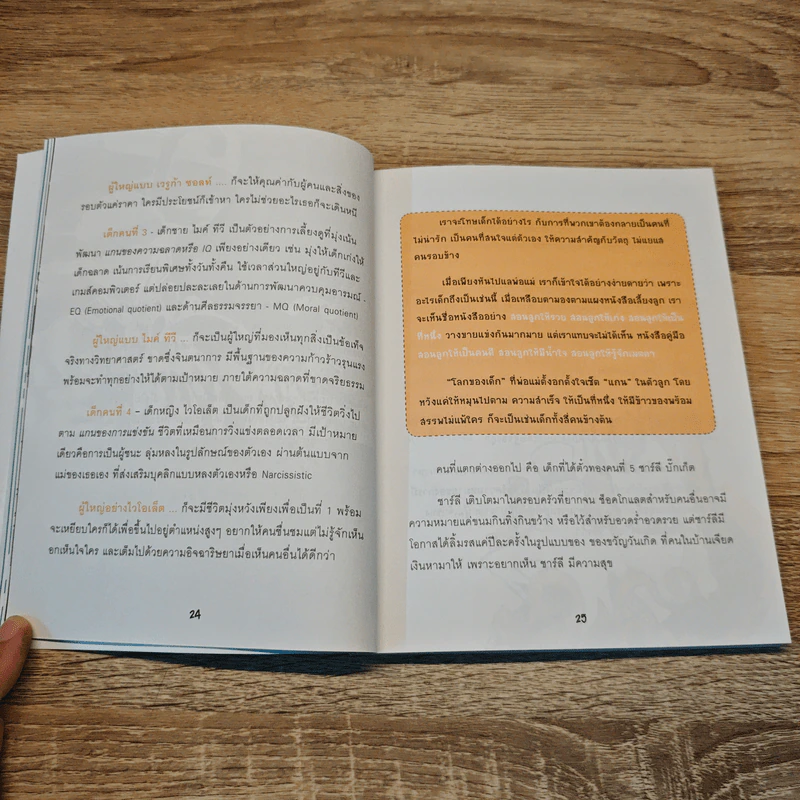 ผู้ใหญ่แบบ เวรูก้า ซอลท์ .... ก็จะให้คุณค่ากับผู้คนและสิ่งของ
รอบตัวแค่ราคา ใครมีประโยชน์ก็เข้าหา ใครไม่ช่วยอะไรเธอก็จะเดินหนี
เด็กคนที่ 3 - เด็กชาย ไมค์ ทีวี เป็นตัวอย่างการเลี้ยงดูที่มุ่งเน้น
พัฒนา แกนของความฉลาดหรือ IQ เพียงอย่างเดียว เช่น มุ่งให้เด็กเก่งให้
เด็กฉลาด เน้นการเรียนพิเศษทั้งวันทั้งคืน ใช้เวลาส่วนใหญ่อยู่กับทีวีและ
เกมส์คอมพิวเตอร์ แต่ปล่อยปละละเลยในด้านการพัฒนาควบคุมอารมณ์ -
EQ (Emotional quotient) และด้านศีลธรรมจรรยา - MQ (Moral quotient)
ผู้ใหญ่แบบ ไมค์ ทีวี .... ก็จะเป็นผู้ใหญ่ที่มองเห็นทุกสิ่งเป็นข้อเท็จ
จริงทางวิทยาศาสตร์ ขาดซึ่งจินตนาการ มีพื้นฐานของความก้าวร้าวรุนแรง
พร้อมจะทำทุกอย่างให้ได้ตามเป้าหมาย ภายใต้ความฉลาดที่ขาดจริยธรรม
เด็กคนที่ 4 - เด็กหญิง ไวโอเล็ต เป็นเด็กที่ถูกปลูกฝังให้ชีวิตวิ่งไป
ตาม แกนของการแข่งขัน ชีวิตที่เหมือนการวิ่งแข่งตลอดเวลา มีเป้าหมาย
เดียวคือการเป็นผู้ชนะ ลุ่มหลงในรูปลักษณ์ของตัวเอง ผ่านต้นแบบจาก
แม่ของเธอเอง ที่ส่งเสริมบุคลิกแบบหลงตัวเองหรือ Narcissistic
ผู้ใหญ่อย่างไวโอเล็ต ... ก็จะมีชีวิตมุ่งหวังเพียงเพื่อเป็นที่ 1 พร้อม
จะเหยียบใครก็ได้เพื่อขึ้นไปอยู่ตำแหน่งสูงๆ อยากให้คนชื่นชมแต่ไม่รู้จักเห็น
อกเห็นใจใคร และเต็มไปด้วยความอิจฉาริษยาเมื่อเห็นคนอื่นได้ดีกว่า
24
เราจะโทษเด็กได้อย่างไร กับการที่พวกเขาต้องกลายเป็นคนที่
ไม่น่ารัก เป็นคนที่สนใจแต่ตัวเอง ให้ความสำคัญกับวัตถุ ไม่แยแส
คนรอบข้าง
เมื่อเพียงหันไปแลพ่อแม่ เราก็เข้าใจได้อย่างง่ายดายว่า เพราะ
อะไรเด็กถึงเป็นเช่นนี้ เมื่อเหลือบตามองตามแผงหนังสือเลี้ยงลูก เรา
จะเห็นชื่อหนังสืออย่าง สอนลูกให้รวย สอนลูกให้เก่ง สอนลูกให้เป็น
ที่หนึ่ง วางขายแข่งกันมากมาย แต่เราแทบจะไม่ได้เห็น หนังสือคู่มือ
สอนลูกให้เป็นคนดี สอนลูกให้มีน้ำใจ สอนลูกให้รู้จักเมตตา
"โลกของเด็ก" ที่พ่อแม่ตั้งอกตั้งใจเซ็ต "แกน" ในตัวลูก โดย
หวังแค่ให้หมุนไปตาม ความสำเร็จ ให้เป็นที่หนึ่ง ให้มีข้าวของพร้อม
สรรพไม่แพ้ใคร ก็จะเป็นเช่นเด็กทั้งสี่คนข้างต้น
คนที่แตกต่างออกไป คือ เด็กที่ได้ตั๋วทองคนที่ 5 ชาร์ลี บั๊กเก็ต
ชาร์ลี เติบโตมาในครอบครัวที่ยากจน ช็อคโกแลตสำหรับคนอื่นอาจมี
ความหมายแค่ขนมกินทิ้งกินขว้าง หรือไว้สำหรับอวดร่ำอวดรวย แต่ชาร์ลีมี
โอกาสได้ลิ้มรสแค่ปีละครั้งในรูปแบบของ ของขวัญวันเกิด ที่คนในบ้านเจียด
เงินหามาให้ เพราะอยากเห็น ชาร์ลี มีความสุข
25